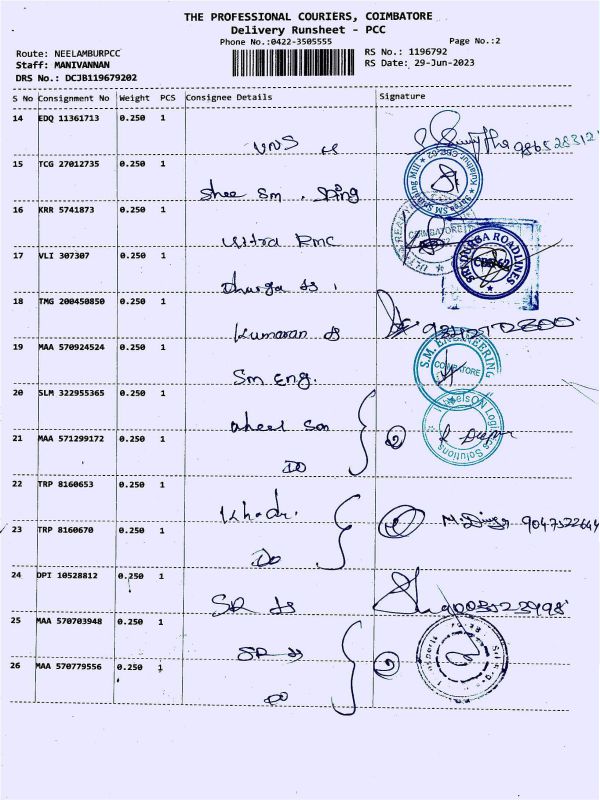 THE PROFESSIONAL COURIERS, COIMBATORE
Delivery Runsheet - PCC
Phone No.:0422-3505555
Page No.:2
Route: NEELAMBURPCC
RS No.: 1196792
Staff: MANIVANNAN
RS Date: 29-Jun-2023
DRS No.: DCJB119679202
S No Consignment No Weight PCS Consignee Details Signature
14 EDQ 11361713 0.250 1
15 TCG 27012735 0.250 1
Shee Sm
16 KRR 5741873 0.250 1
COIMBATORE
Ultra Rmc
SRI DURGA ROADLINES
CBE-62
17 VLI 307307 0.250 1
Dhurga
18 TMG 200450850 0.250 1
Kumaran
19 MAA 570924524 0.250 1
S.M. ENGINEERING
COIMBATORE
Sm Eng.
20 SLM 322955365 0.250 1
21 MAA 571299172 0.250 1
2
DO
22 TRP 8160653 0.250 1
Khadi.
9047522644
23 TRP 8160670 0.250 1
Do
24 DPI 10528812 0.250 1
SR
25 MAA 570703948 0.250 1
SR
26 MAA 570779556 0.250 1
DO